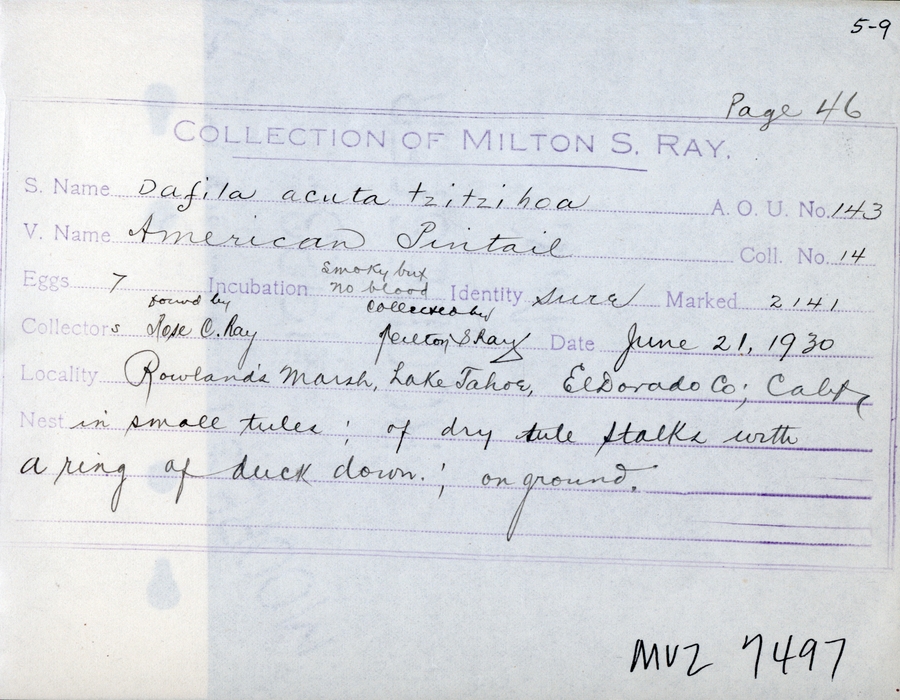 5-9
Page 46
COLLECTION OF MILTON S. RAY.
S. Name Dafila acuta tzitzihoa A. O. U. No. 143
V. Name American Pintail Coll. No. 14
Eggs 7 Incubation smoky but no blood Identity sure Marked 2141
Collectors found by Rose C. Ray collected by Milton S Ray Date June 21, 1930
Locality Rowland's Marsh, Lake Tahoe, El Dorado Co; Calif
Nest in small tules; of dry tule stalks with
a ring of duck down.; on ground.
MVZ 7497